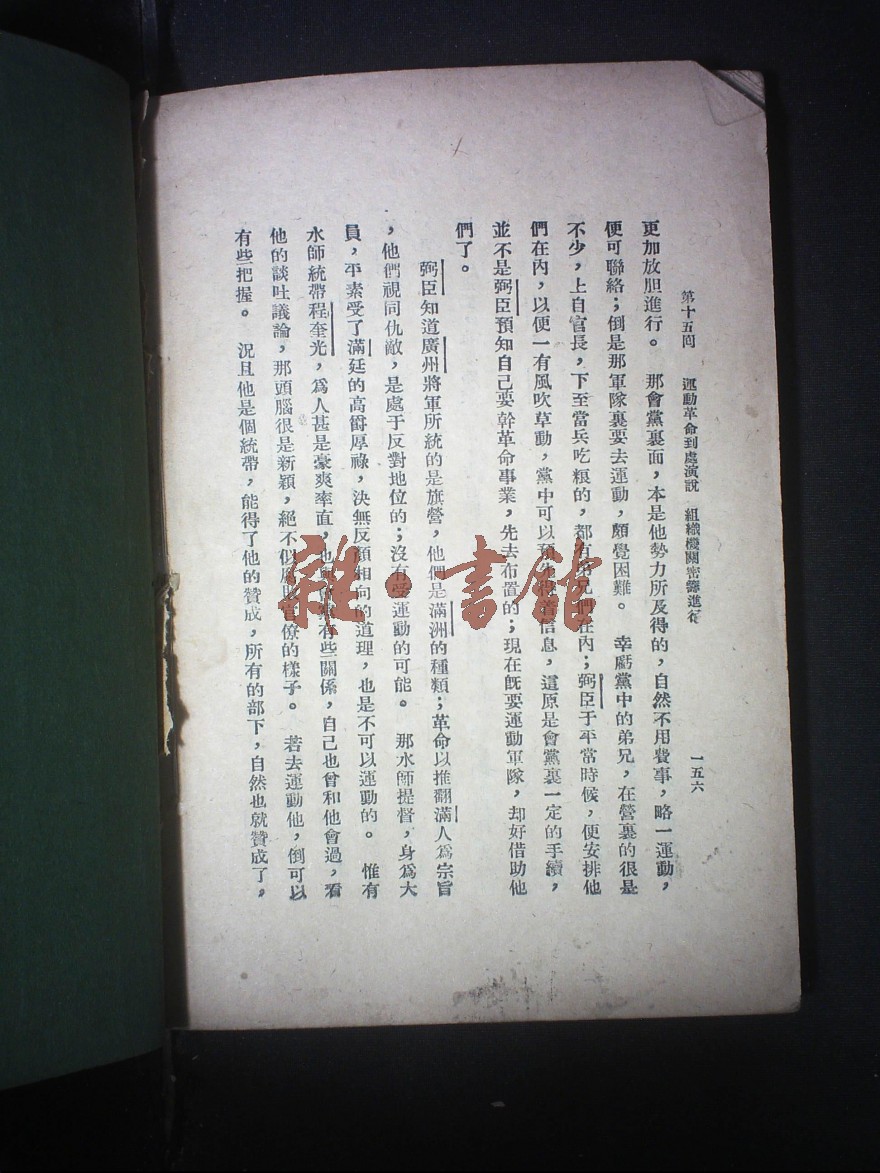 第十五回　運動革命到處演說　組織機關密籌進行　一五六
更加放胆進行。　那會黨裏面，本是他勢力所及得的，自然不用費事，略一運動，
便可聯絡；倒是那軍隊裏要去運動，頗覺困難。　幸虧黨中的弟兄，在營裏的很是
不少，上自官長，下至當兵吃粮的，都有弟兄們在內；弼臣于平常時候，便安排他
們在內，以便一有風吹草動，黨中可以預先得着信息，這原是會黨裏一定的手續，
並不是弼臣預知自己要幹革命事業，先去布置的；現在旣要運動軍隊，却好借助他
們了。
弼臣知道廣州將軍所統的是旗營，他們是滿洲的種類；革命以推翻滿人爲宗旨
，他們視同仇敵，是處于反對地位的；沒有受運動的可能。　那水師提督，身爲大
員，平素受了滿廷的高爵厚祿，決無反顏相向的道理，也是不可以運動的。　惟有
水師統帶程奎光，爲人甚是豪爽率直，也與會黨有些關係，自己也曾和他會過，看
他的談吐議論，那頭腦很是新穎，絕不似腐敗官僚的樣子。　若去運動他，倒可以
有些把握。　況且他是個統帶，能得了他的贊成，所有的部下，自然也就贊成了，
雜·書館